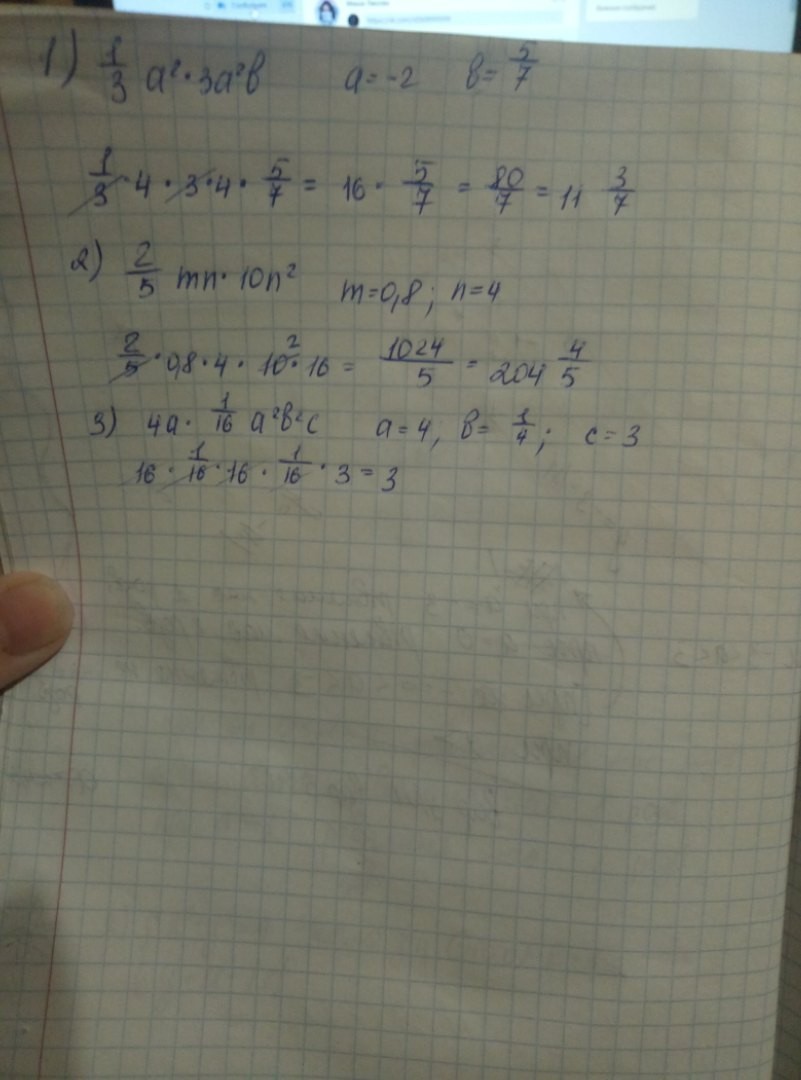 1) 1/3 a² · 3a²b a = -2 b = 5/7
1/3 · 4 · 3 · 4 · 5/7 = 16 · 5/7 = 80/7 = 11 3/7
2) 2/5 mn · 10n² m=0,8; n=4
2/5 · 0,8 · 4 · 10 2 · 16 = 1024/5 = 204 4/5
3) 4a · 1/16 a²b²c a = 4, b = 1/4; c = 3
16 · 1/16 · 16 · 1/16 · 3 = 3